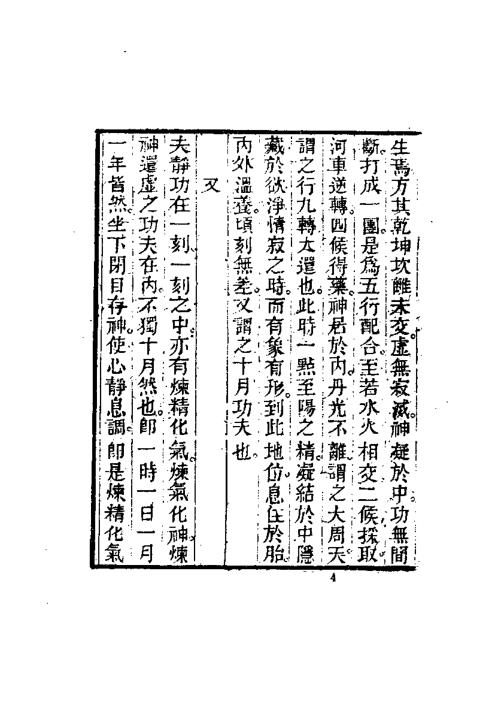 生焉方其乾坤坎離未交虛無寂滅神凝於中功無間
斷打成一團是爲五行配合至若水火相交二候採取
河車逆轉四候得藥神居於內丹光不離謂之大周天
謂之行九轉大還也此時一點至陽之精凝結於中隱
藏於欲淨情寂之時而有象有形到此地位息住於胎
內外溫養頃刻無差又謂之十月功夫也
又
夫靜功在一刻一刻之中亦有煉精化氣煉氣化神煉
神還虛之功夫在內不獨十月然也卽一時一日一月
一年皆然坐下閉目存神使心靜息調卽是煉精化氣
4